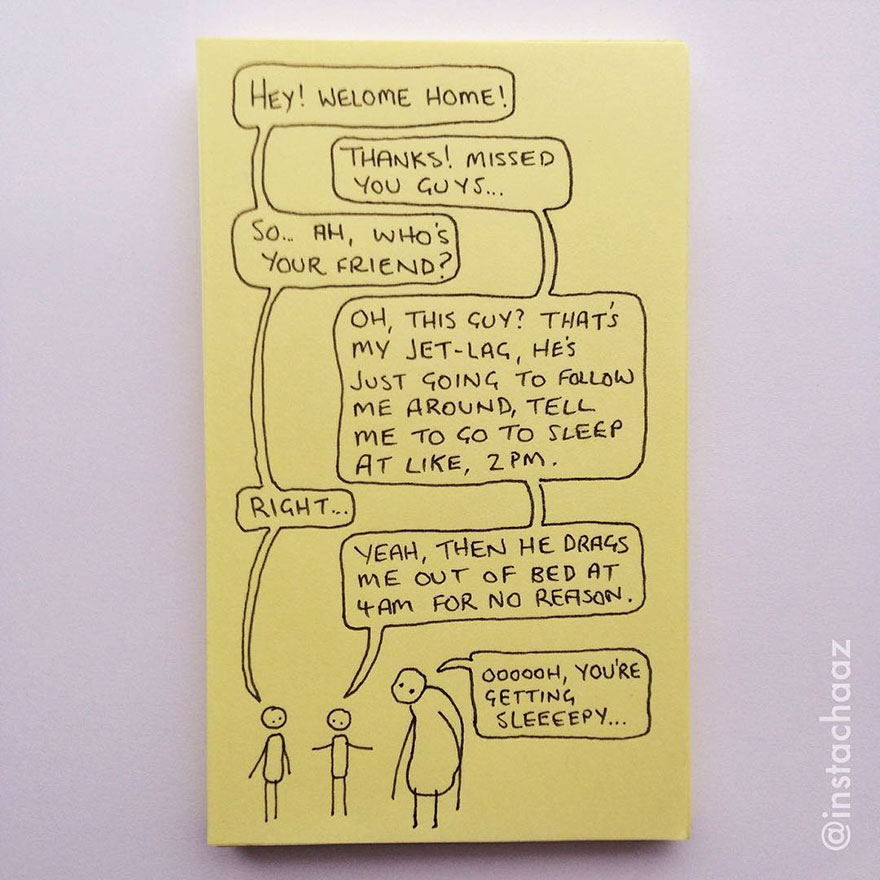 HEY! WELOME HOME!
THANKS! MISSED
YOU GUYS...
SO... AH, WHO'S
YOUR FRIEND?
OH, THIS GUY? THAT'S
MY JET-LAG, HE'S
JUST GOING TO FOLLOW
ME AROUND, TELL
ME TO GO TO SLEEP
AT LIKE, 2PM.
RIGHT...
YEAH, THEN HE DRAGS
ME OUT OF BED AT
4AM FOR NO REASON.
OOOOOH, YOU'RE
GETTING
SLEEEEPY...
@instachaaz